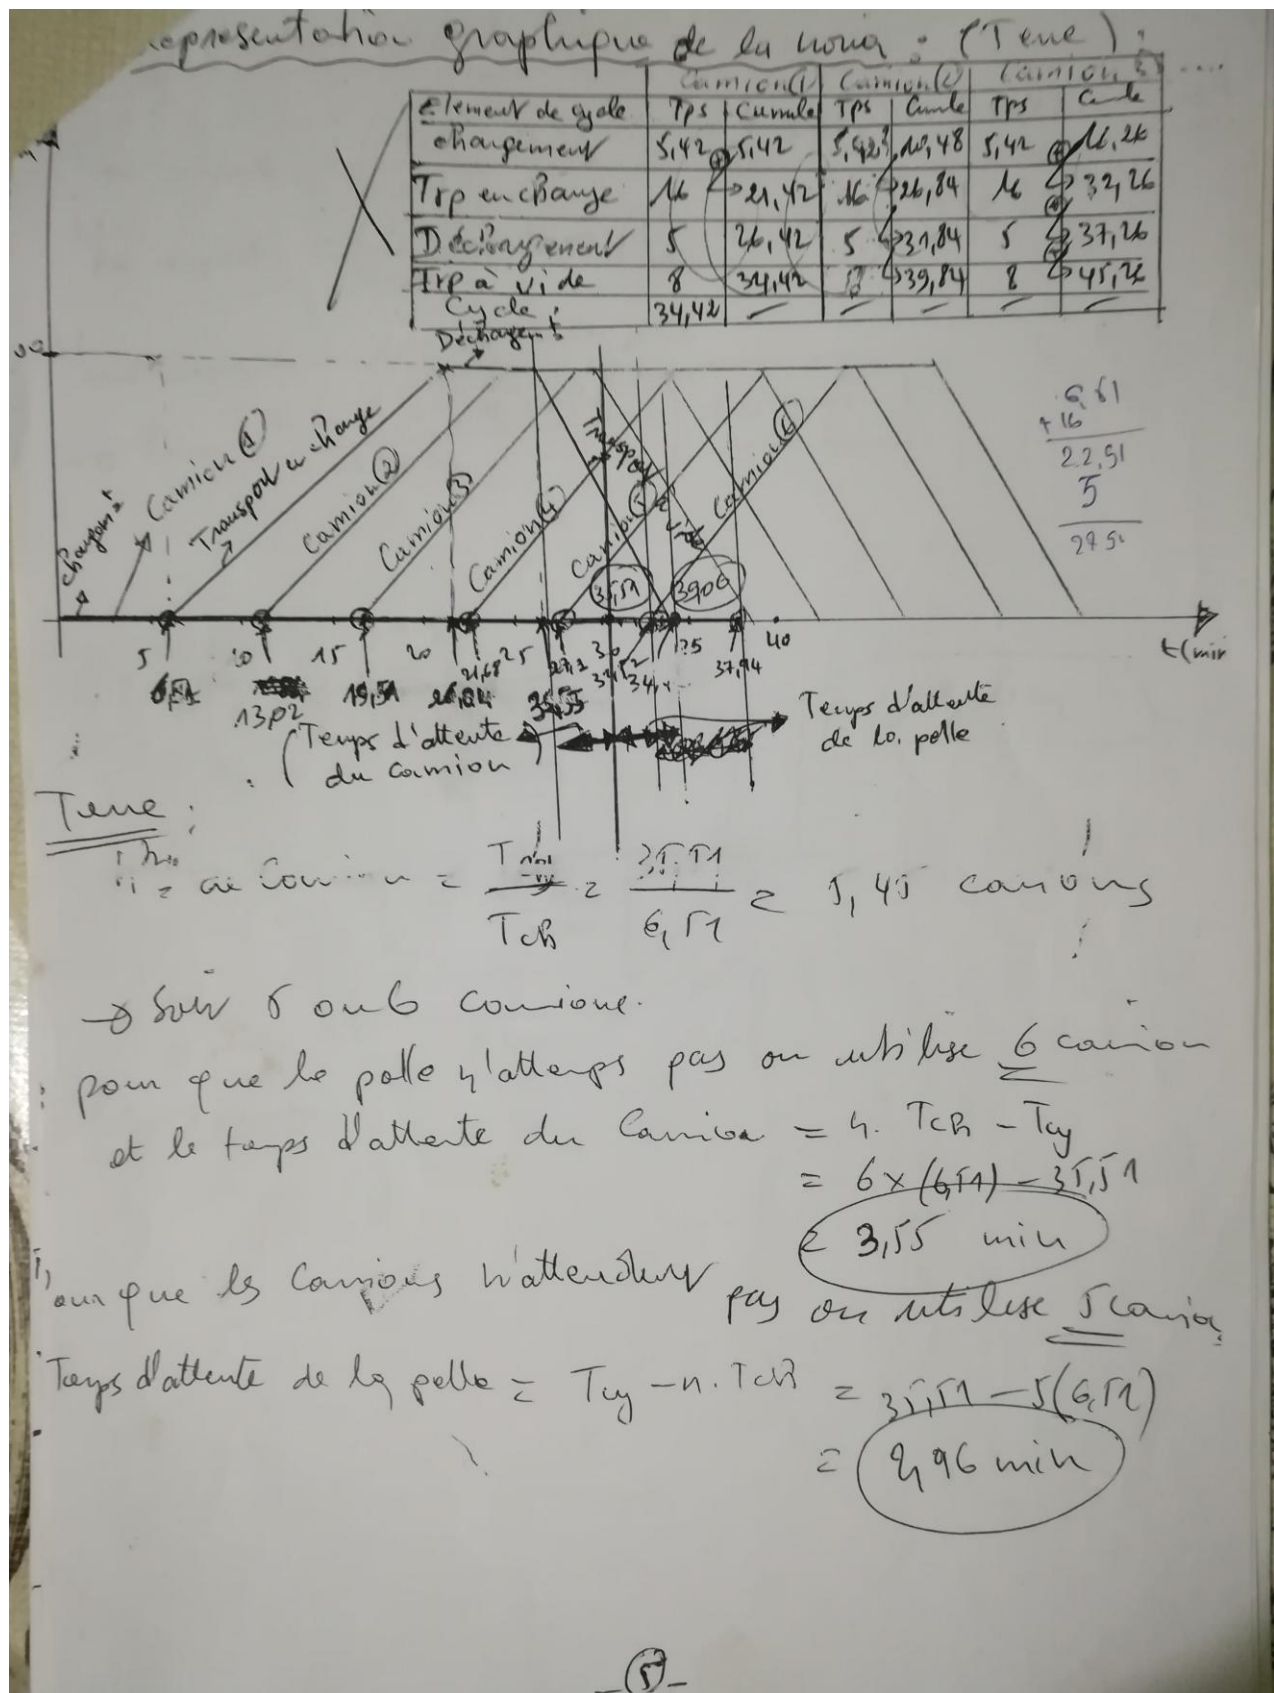 representation graphique de la noria : (Terre) :
Camion(1) Camion(2) Camion 3
Element de cycle Tps Cumule Tps Cumle Tps Cumle
chargement 5,42 5,42 5,42 10,48 5,42 16,26
Trp en charge 16 21,42 16 26,84 16 32,26
Déchargement 5 26,42 5 31,84 5 37,26
Trp à vide 8 34,42 39,84 8 45,26
Cycle : 34,42 — — — —
Déchargemt
6,51
+ 16
22,51
5
27,51
Chargemt
Camion 1
Transport en charge
Camion 2
Camion 3
Camion 4
Camion 5
Transport à vide
Camion 6
35,51 3906
5 10 15 20 25 30 35 40
t(min
21,68 27,1 37,94
6,51 13,02 19,51
(Temps d'attente
du camion)
Temps d'attente
de la pelle
Terre :
de Camion = = 35,51 / 6,51 = 5,45 camions
Tch
→ Soit 5 ou 6 camions.
pour que la pelle n'attemps pas on utilise 6 camion
et le temps d'attente du Camion = n. Tch - Tcy
= 6 x (6,51) - 35,51
= 3,55 min
Pour que les Camions n'attendent pas on utilise 5 camion
Temps d'attente de la pelle = Tcy - n. Tch = 35,51 - 5(6,51)
= 2,96 min
- 5 -